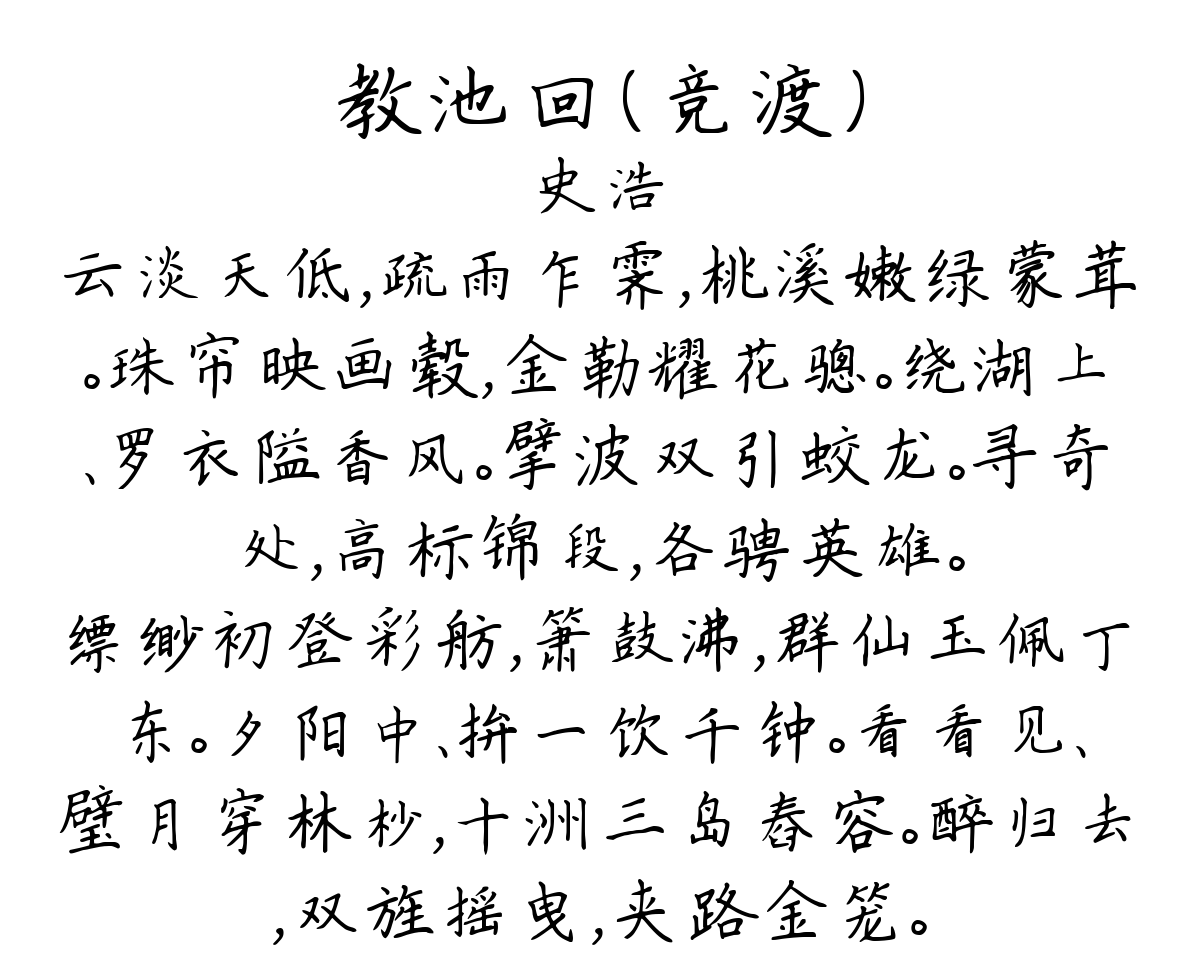 教池回(竞渡)
史浩
云淡天低,疏雨乍霁,桃溪嫩绿蒙茸
。珠帘映画毂,金勒耀花骢。绕湖上
、罗衣隘香风。擘波双引蛟龙。寻奇
处,高标锦段,各骋英雄。
缥缈初登彩舫,箫鼓沸,群仙玉佩丁
东。夕阳中、拚一饮千钟。看看见、
璧月穿林杪,十洲三岛舂容。醉归去
,双旌摇曳,夹路金笼。